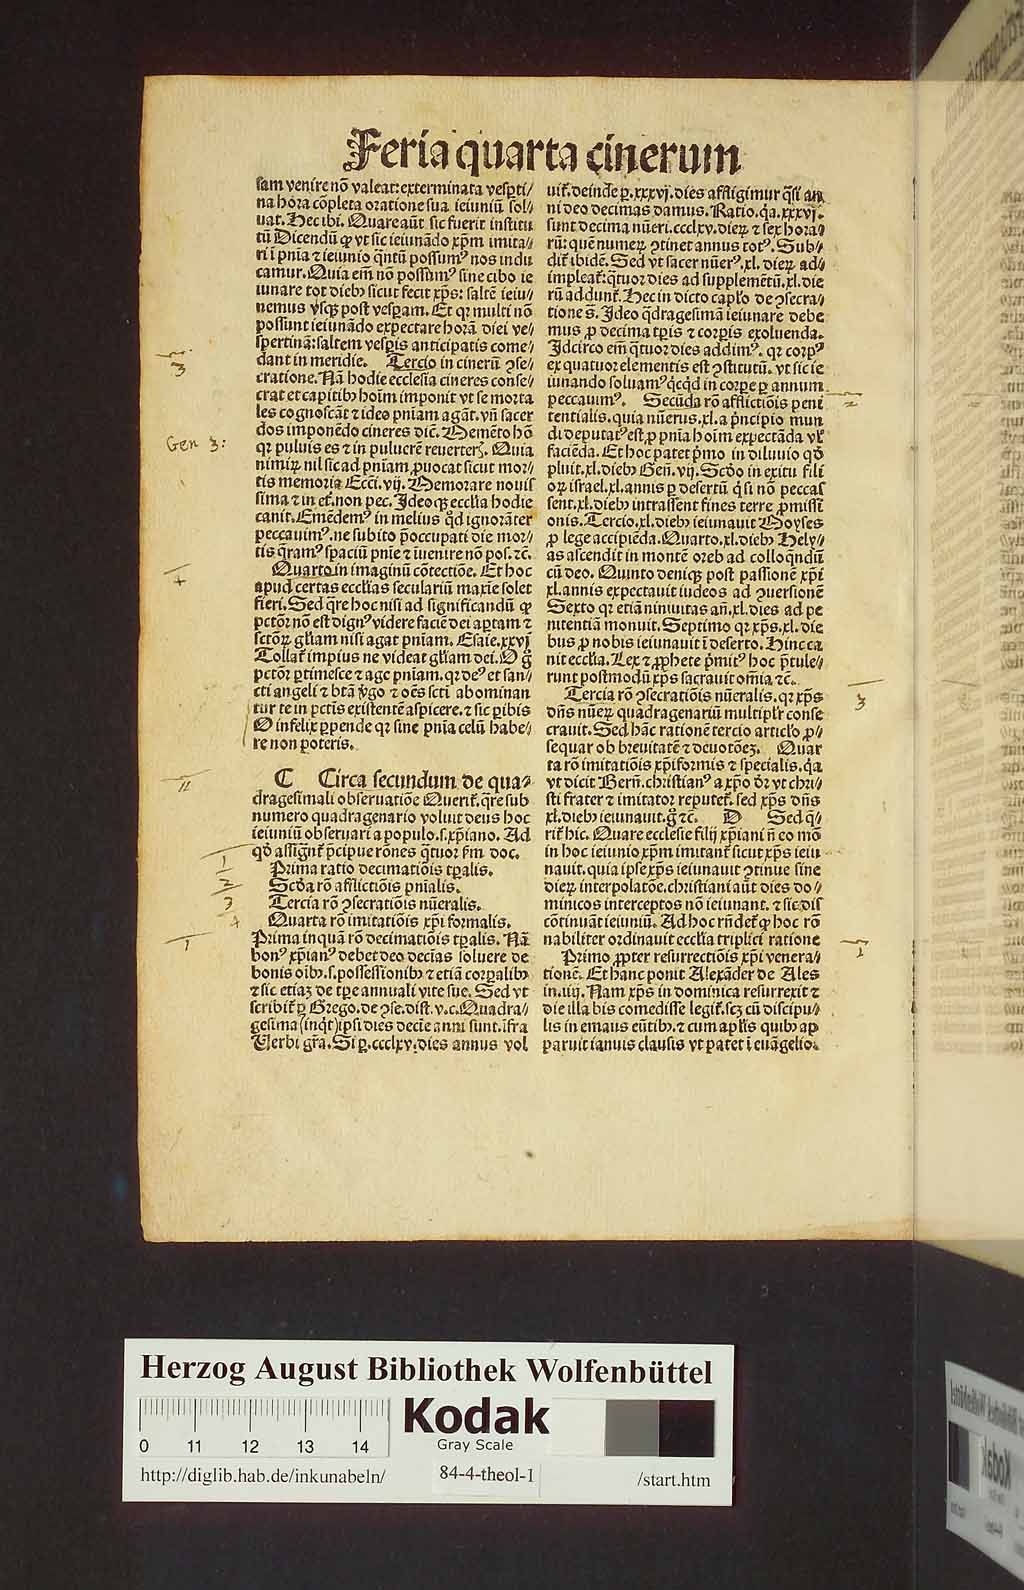 Feria quarta cinerum
sam venire nō valeat: exterminata vesp̲ti⸗
na hora cōpleta oratione sua ieiuniū sol⸗
uat. Hec ibi. Quare aūt sic fuerit institu
tū Dicendū ꝙ vt sic ieiunādo xp̄m imita⸗
ri ī pn̄ia ⁊ ieiunio qn̄tū possumꝰ nos indu
camur. Quia em̄ nō possumꝰ sine cibo ie
iunare tot diebꝫ sicut fecit xp̄s: saltē ieiu⸗
nemus vsqꝫ post vesꝑam. Et qr multi nō
possunt ieiunādo expectare horā diei ve⸗
sꝑtinā: saltem vesꝑis anticipatis come⸗
dant in meridie. Tercio in cinerū ꝯse⸗
cratione. Nā hodie ecclesia cineres conse⸗
crat et capitibꝫ hoīm imponit vt se morta
les cognoscāt ⁊ ideo pn̄iam agāt. vn̄ sacer
dos imponēdo cineres dic̄. Memēto hō
qr puluis es ⁊ in puluerē reuerterꝭ. Quia
nimirꝝ nil sic ad pn̄iam ꝓuocat sicut mor⸗
tis memoria Ecci. vij. Memorare nouis
sima ⁊ in et̄. non pec. Ideoqꝫ ecclia hodie
canit. Emēdemꝰ in melius qd̄ ignorāter
peccauimꝰ. ne subito p̄occupati die mor⸗
tis q̄ramꝰ spaciū pn̄ie ⁊ īuenire nō pos. ⁊c̄.
Quarto in imaginū cōtectiōe. Et hoc
apud certas ecclīas seculariū maxīe solet
fieri. Sed q̄re hoc nisi ad significandū ꝙ
pctōr nō est dignꝰ videre faciē dei aꝑtam ⁊
sctōꝝ gl̄iam nisi agat pn̄iam. Esaie. xxvj
Tollat̄ impius ne videat gl̄iam dei. O g̊
pctōr ꝑtimesce ⁊ age pn̄iam. qr deꝰ et san⸗
cti angeli ⁊ btā v̄go ⁊ oēs scti abominan
tur te in pctīs existentē aspicere. ⁊ sic ꝑibis
O infelix ꝑpende qr sine pn̄ia celū habe⸗
re non poteris.
C Circa secundum de qua⸗
dragesimali obseruatiōe Querit̄. q̄re sub
numero quadragenario voluit deus hoc
ieiuniū obseruari a populo. s. xp̄iano. Ad
qd̄ assignt̄ p̄cipue rōnes q̄tuor fm̄ doc.
Prima ratio decimatiōis tꝑalis.
Scd̄a rō afflictiōis pn̄ialis.
Tercia rō ꝯsecratiōis nūeralis.
Quarta rō imitatiōis xp̄i formalis.
Prima inquā rō decimatiōis tꝑalis. Nā
bonꝰ xp̄ianꝰ debet deo decīas soluere de
bonis oībꝫ. s. possessionibꝫ ⁊ etiā corꝑalibꝫ
⁊ sic etiaꝫ de tꝑe annuali vite sue. Sed vt
scribit̄ ꝑ Grego. de ꝯse. dist. v. c. Quadra⸗
gesima (inqt̄) ipsi dies decīe anni sunt. īfra
Verbi gr̄a. Si ꝑ. ccclxv. dies annus vol
uit̄. deinde ꝑ. xxxvj. dies affligimur q̄si an
ni deo decimas damus. Ratio. q̄a. xxxvj.
sunt decima nūeri. ccclxv. dieꝝ ⁊ sex hora⸗
rū: quē numeꝝ ꝯtinet annus totꝰ. Sub⸗
dit̄ ibidē. Sed vt sacer nūerꝰ. xl. dieꝝ ad⸗
impleat̄: q̄tuor dies ad supplemētū. xl. die
rū addunt̄. Hec in dicto capl̄o de ꝯsecra⸗
tione s̄. Ideo q̄dragesimā ieiunare debe
mus ꝓ decima tꝑis ⁊ corꝑis exoluenda.
Idcirco em̄ q̄tuor dies addimꝰ. qr corpꝰ
ex quatuor elementis est ꝯstitutū. vt sic ie
iunando soluamꝰ qcqd̄ in corꝑe ꝑ annum
peccauimꝰ. Secūda rō afflictiōis peni
tentialis. quia nūerus. xl. a p̄ncipio mun
di deputatꝰ est ꝓ pn̄ia hoīm expectāda vl̓
faciēda. Et hoc patet p̄mo in diluuio qd̄
pluit. xl. diebꝫ Gen̄. vij. Scd̄o in exitu fili
oꝝ israel. xl. annis ꝑ desertū q̄ si nō peccas
sent. xl. diebꝫ intrassent fines terre ꝓmissi
onis. Tercio. xl. diebꝫ ieiunauit Moyses
ꝓ lege accipiēda. Quarto. xl. diebꝫ Hely⸗
as ascendit in montē oreb ad colloqndū
cū deo. Quinto deniqꝫ post passionē xp̄i
xl. annis expectauit iudeos ad ꝯuersionē
Sexto qr etiā niniuitas an̄. xl. dies ad pe
nitentiā monuit. Septimo qr xp̄s. xl. die
bus ꝓ nobis ieiunauit ī deserto. Hinc ca
nit ecclīa. Lex ⁊ ꝓphete p̄mitꝰ hoc p̄tule⸗
runt postmodū xp̄s sacrauit omīa ⁊c̄.
Tercia rō ꝯsecratiōis nūeralis. qr xp̄s
dn̄s nūeꝝ quadragenariū multiplr̄ conse
crauit. Sed hāc rationē tercio articl̓o ꝓ⸗
sequar ob breuitatē ⁊ deuotōeꝫ. Quar
ta rō imitatiōis xp̄iformis ⁊ specialis. q̄a
vt dicit Bern̄. christianꝰ a xp̄o dr̄ vt chri⸗
sti frater ⁊ imitator reputet̄. sed xp̄s dn̄s
xl. diebꝫ ieiunauit. g̊ ⁊c̄. D Sed q̄⸗
rit̄ hic. Quare ecclesie filij xp̄iani n̄ eo mō
in hoc ieiunio xp̄m imitant̄ sicut xp̄s ieiu
nauit. quia ipse xp̄s ieiunauit ꝯtinue sine
dieꝝ interpolatōe. christiani aūt dies do⸗
minicos interceptos nō ieiunant. ⁊ sic dis
cōtinuāt ieiuniū. Ad hoc rn̄det̄ ꝙ hoc rō
nabiliter ordinauit ecclīa triplici ratione
Primo ꝓpter resurrectiōis xp̄i venera⸗
tionē. Et hanc ponit Alexāder de Ales
in. iiij. Nam xp̄s in dominica resurrexit ⁊
die illa bis comedisse legit̄. scꝫ cū discipu⸗
lis in emaus eūtibꝫ. ⁊ cum apl̄is quibꝫ ap
paruit ianuis clausis vt patet ī euāgelio.
3
Gen 3:
4
II
1
2
3
4
1
2
3
1
Herzog August Bibliothek Wolfenbüttel
Kodak
Gray Scale
0 11 12 13 14
http://diglib.hab.de/inkunabeln/
84-4-theol-1
/start.htm